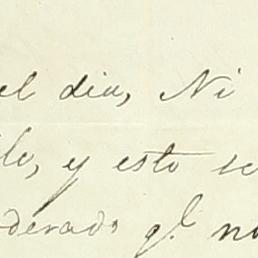 el dia, Ni
lo, y esto se
oderado qᵉ. no